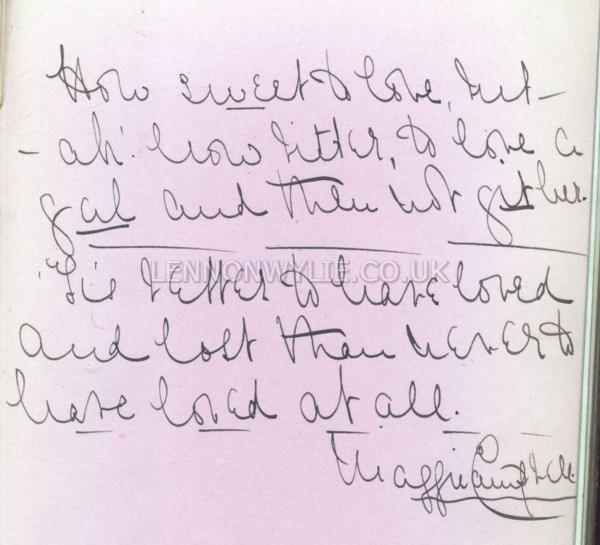 How sweet to love, but –
– ah! how bitter, to love a
gal and then not git her.
LENNONWYLIE.CO.UK
'Tis better to have loved
and lost than never to
have loved at all.
Maggie Campbell